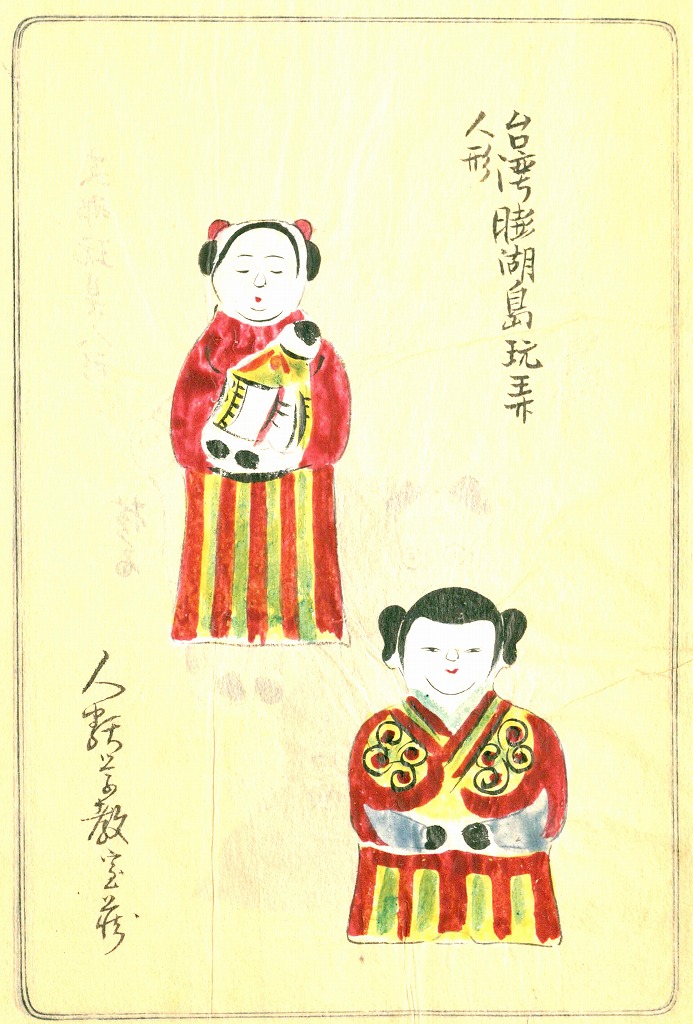 台湾膨湖島玩弄
人形
人類学教室蔵